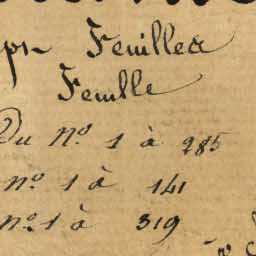 Feuilles
Feuille
Du Nº 1 à 285
nº 1 à 141
nº 1 à 319